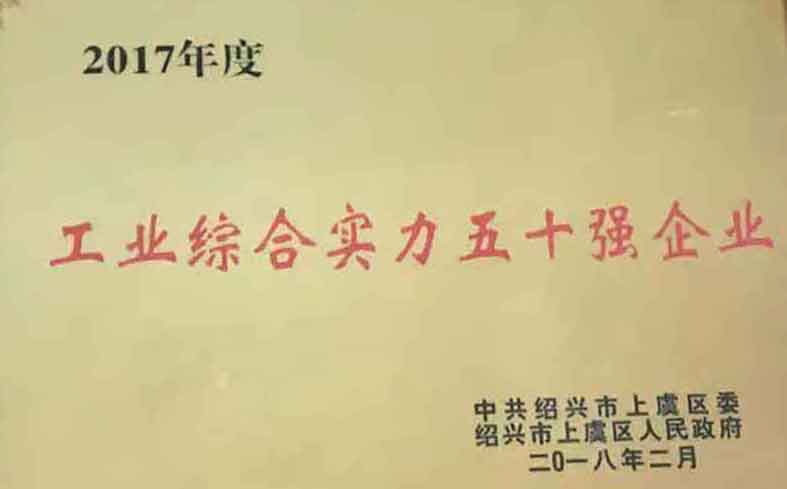 2017年度
工业综合实力五十强企业
中共绍兴市上虞区委
绍兴市上虞区人民政府
二0一八年二月